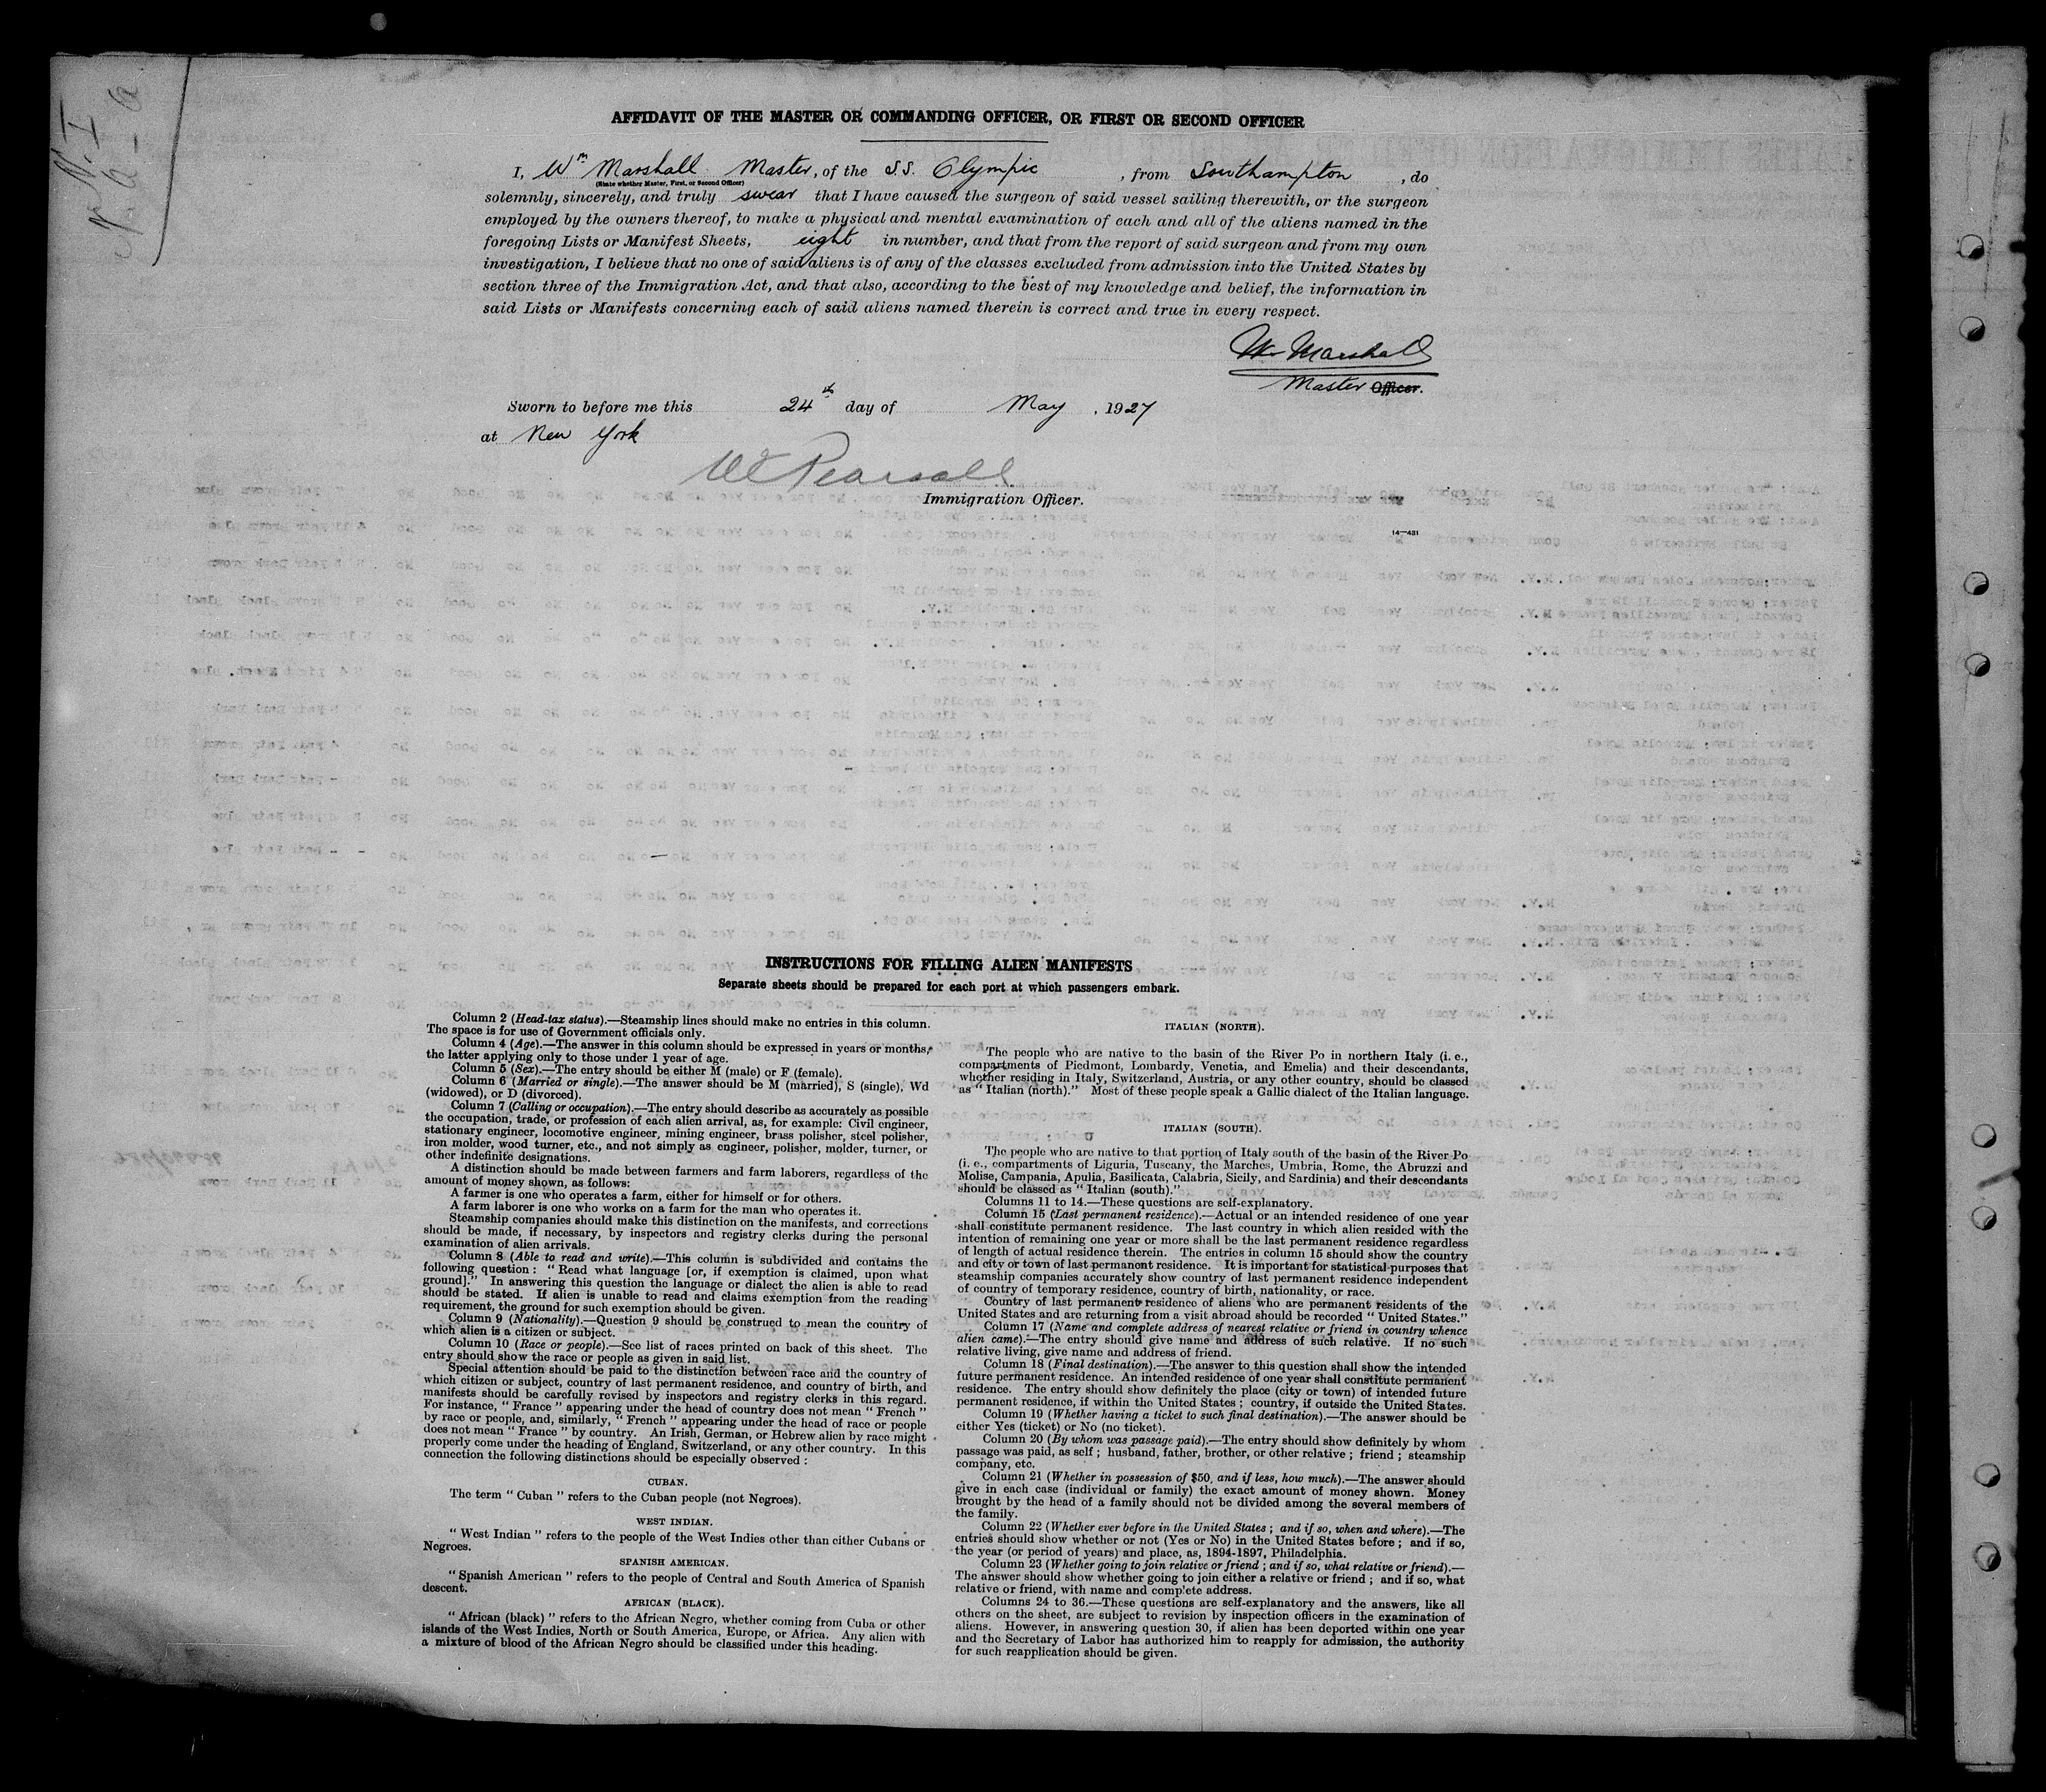 N.I
AFFIDAVIT OF THE MASTER OR COMMANDING OFFICER, OR FIRST OR SECOND OFFICER
I, Wm Marshall Master, of the S.S. Olympic, from Southampton, do
(State whether Master, First, or Second Officer)
solemnly, sincerely, and truly swear that I have caused the surgeon of said vessel sailing therewith, or the surgeon
employed by the owners thereof, to make a physical and mental examination of each and all of the aliens named in the
foregoing Lists or Manifest Sheets, eight in number, and that from the report of said surgeon and from my own
investigation, I believe that no one of said aliens is of any of the classes excluded from admission into the United States by
section three of the Immigration Act, and that also, according to the best of my knowledge and belief, the information in
said Lists or Manifests concerning each of said aliens named therein is correct and true in every respect.
Wm Marshall
Master Officer.
Sworn to before me this 24th day of May, 1927
at New York
Pearsall
Immigration Officer.
14—431
INSTRUCTIONS FOR FILLING ALIEN MANIFESTS
Separate sheets should be prepared for each port at which passengers embark.
Column 2 (Head-tax status).—Steamship lines should make no entries in this column.
The space is for use of Government officials only.
Column 4 (Age).—The answer in this column should be expressed in years or months,
the latter applying only to those under 1 year of age.
Column 5 (Sex).—The entry should be either M (male) or F (female).
Column 6 (Married or single).—The answer should be M (married), S (single), Wd
(widowed), or D (divorced).
Column 7 (Calling or occupation).—The entry should describe as accurately as possible
the occupation, trade, or profession of each alien arrival, as, for example: Civil engineer,
stationary engineer, locomotive engineer, mining engineer, brass polisher, steel polisher,
iron molder, wood turner, etc., and not simply as engineer, polisher, molder, turner, or
other indefinite designations.
A distinction should be made between farmers and farm laborers, regardless of the
amount of money shown, as follows:
A farmer is one who operates a farm, either for himself or for others.
A farm laborer is one who works on a farm for the man who operates it.
Steamship companies should make this distinction on the manifests, and corrections
should be made, if necessary, by inspectors and registry clerks during the personal
examination of alien arrivals.
Column 8 (Able to read and write).—This column is subdivided and contains the
following question: "Read what language [or, if exemption is claimed, upon what
ground]." In answering this question the language or dialect the alien is able to read
should be stated. If alien is unable to read and claims exemption from the reading
requirement, the ground for such exemption should be given.
Column 9 (Nationality).—Question 9 should be construed to mean the country of
which alien is a citizen or subject.
Column 10 (Race or people).—See list of races printed on back of this sheet. The
entry should show the race or people as given in said list.
Special attention should be paid to the distinction between race and the country of
which citizen or subject, country of last permanent residence, and country of birth, and
manifests should be carefully revised by inspectors and registry clerks in this regard.
For instance, "France" appearing under the head of country does not mean "French"
by race or people, and, similarly, "French" appearing under the head of race or people
does not mean "France" by country. An Irish, German, or Hebrew alien by race might
properly come under the heading of England, Switzerland, or any other country. In this
connection the following distinctions should be especially observed:
CUBAN.
The term "Cuban" refers to the Cuban people (not Negroes).
WEST INDIAN.
"West Indian" refers to the people of the West Indies other than either Cubans or
Negroes.
SPANISH AMERICAN.
"Spanish American" refers to the people of Central and South America of Spanish
descent.
AFRICAN (BLACK).
"African (black)" refers to the African Negro, whether coming from Cuba or other
islands of the West Indies, North or South America, Europe, or Africa. Any alien with
a mixture of blood of the African Negro should be classified under this heading.
ITALIAN (NORTH).
The people who are native to the basin of the River Po in northern Italy (i. e.,
compartments of Piedmont, Lombardy, Venetia, and Emelia) and their descendants,
whether residing in Italy, Switzerland, Austria, or any other country, should be classed
as "Italian (north)." Most of these people speak a Gallic dialect of the Italian language.
ITALIAN (SOUTH).
The people who are native to that portion of Italy south of the basin of the River Po
(i. e., compartments of Liguria, Tuscany, the Marches, Umbria, Rome, the Abruzzi and
Molise, Campania, Apulia, Basilicata, Calabria, Sicily, and Sardinia) and their descendants
should be classed as "Italian (south)."
Columns 11 to 14.—These questions are self-explanatory.
Column 15 (Last permanent residence).—Actual or an intended residence of one year
shall constitute permanent residence. The last country in which alien resided with the
intention of remaining one year or more shall be the last permanent residence regardless
of length of actual residence therein. The entries in column 15 should show the country
and city or town of last permanent residence. It is important for statistical purposes that
steamship companies accurately show country of last permanent residence independent
of country of temporary residence, country of birth, nationality, or race.
Country of last permanent residence of aliens who are permanent residents of the
United States and are returning from a visit abroad should be recorded "United States."
Column 17 (Name and complete address of nearest relative or friend in country whence
alien came).—The entry should give name and address of such relative. If no such
relative living, give name and address of friend.
Column 18 (Final destination).—The answer to this question shall show the intended
future permanent residence. An intended residence of one year shall constitute permanent
residence. The entry should show definitely the place (city or town) of intended future
permanent residence, if within the United States; country, if outside the United States.
Column 19 (Whether having a ticket to such final destination).—The answer should be
either Yes (ticket) or No (no ticket).
Column 20 (By whom was passage paid).—The entry should show definitely by whom
passage was paid, as self; husband, father, brother, or other relative; friend; steamship
company, etc.
Column 21 (Whether in possession of $50, and if less, how much).—The answer should
give in each case (individual or family) the exact amount of money shown. Money
brought by the head of a family should not be divided among the several members of
the family.
Column 22 (Whether ever before in the United States; and if so, when and where).—The
entries should show whether or not (Yes or No) in the United States before; and if so,
the year (or period of years) and place, as, 1894-1897, Philadelphia.
Column 23 (Whether going to join relative or friend; and if so, what relative or friend).—
The answer should show whether going to join either a relative or friend; and if so, what
relative or friend, with name and complete address.
Columns 24 to 36.—These questions are self-explanatory and the answers, like all
others on the sheet, are subject to revision by inspection officers in the examination of
aliens. However, in answering question 30, if alien has been deported within one year
and the Secretary of Labor has authorized him to reapply for admission, the authority
for such reapplication should be given.